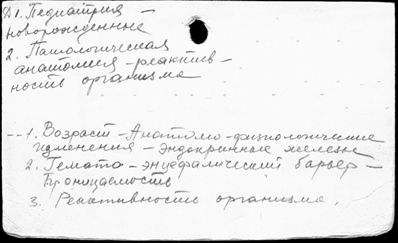 1. Педиатрия –
новорожденные
2. Патологическая
анатомия – реактив-
ность организма
1. Возраст – Анатомо-физиологические
изменения – Эндокринные железы
2. Гемато-энцефалический барьер –
Проницаемость
3. Реактивность организма.